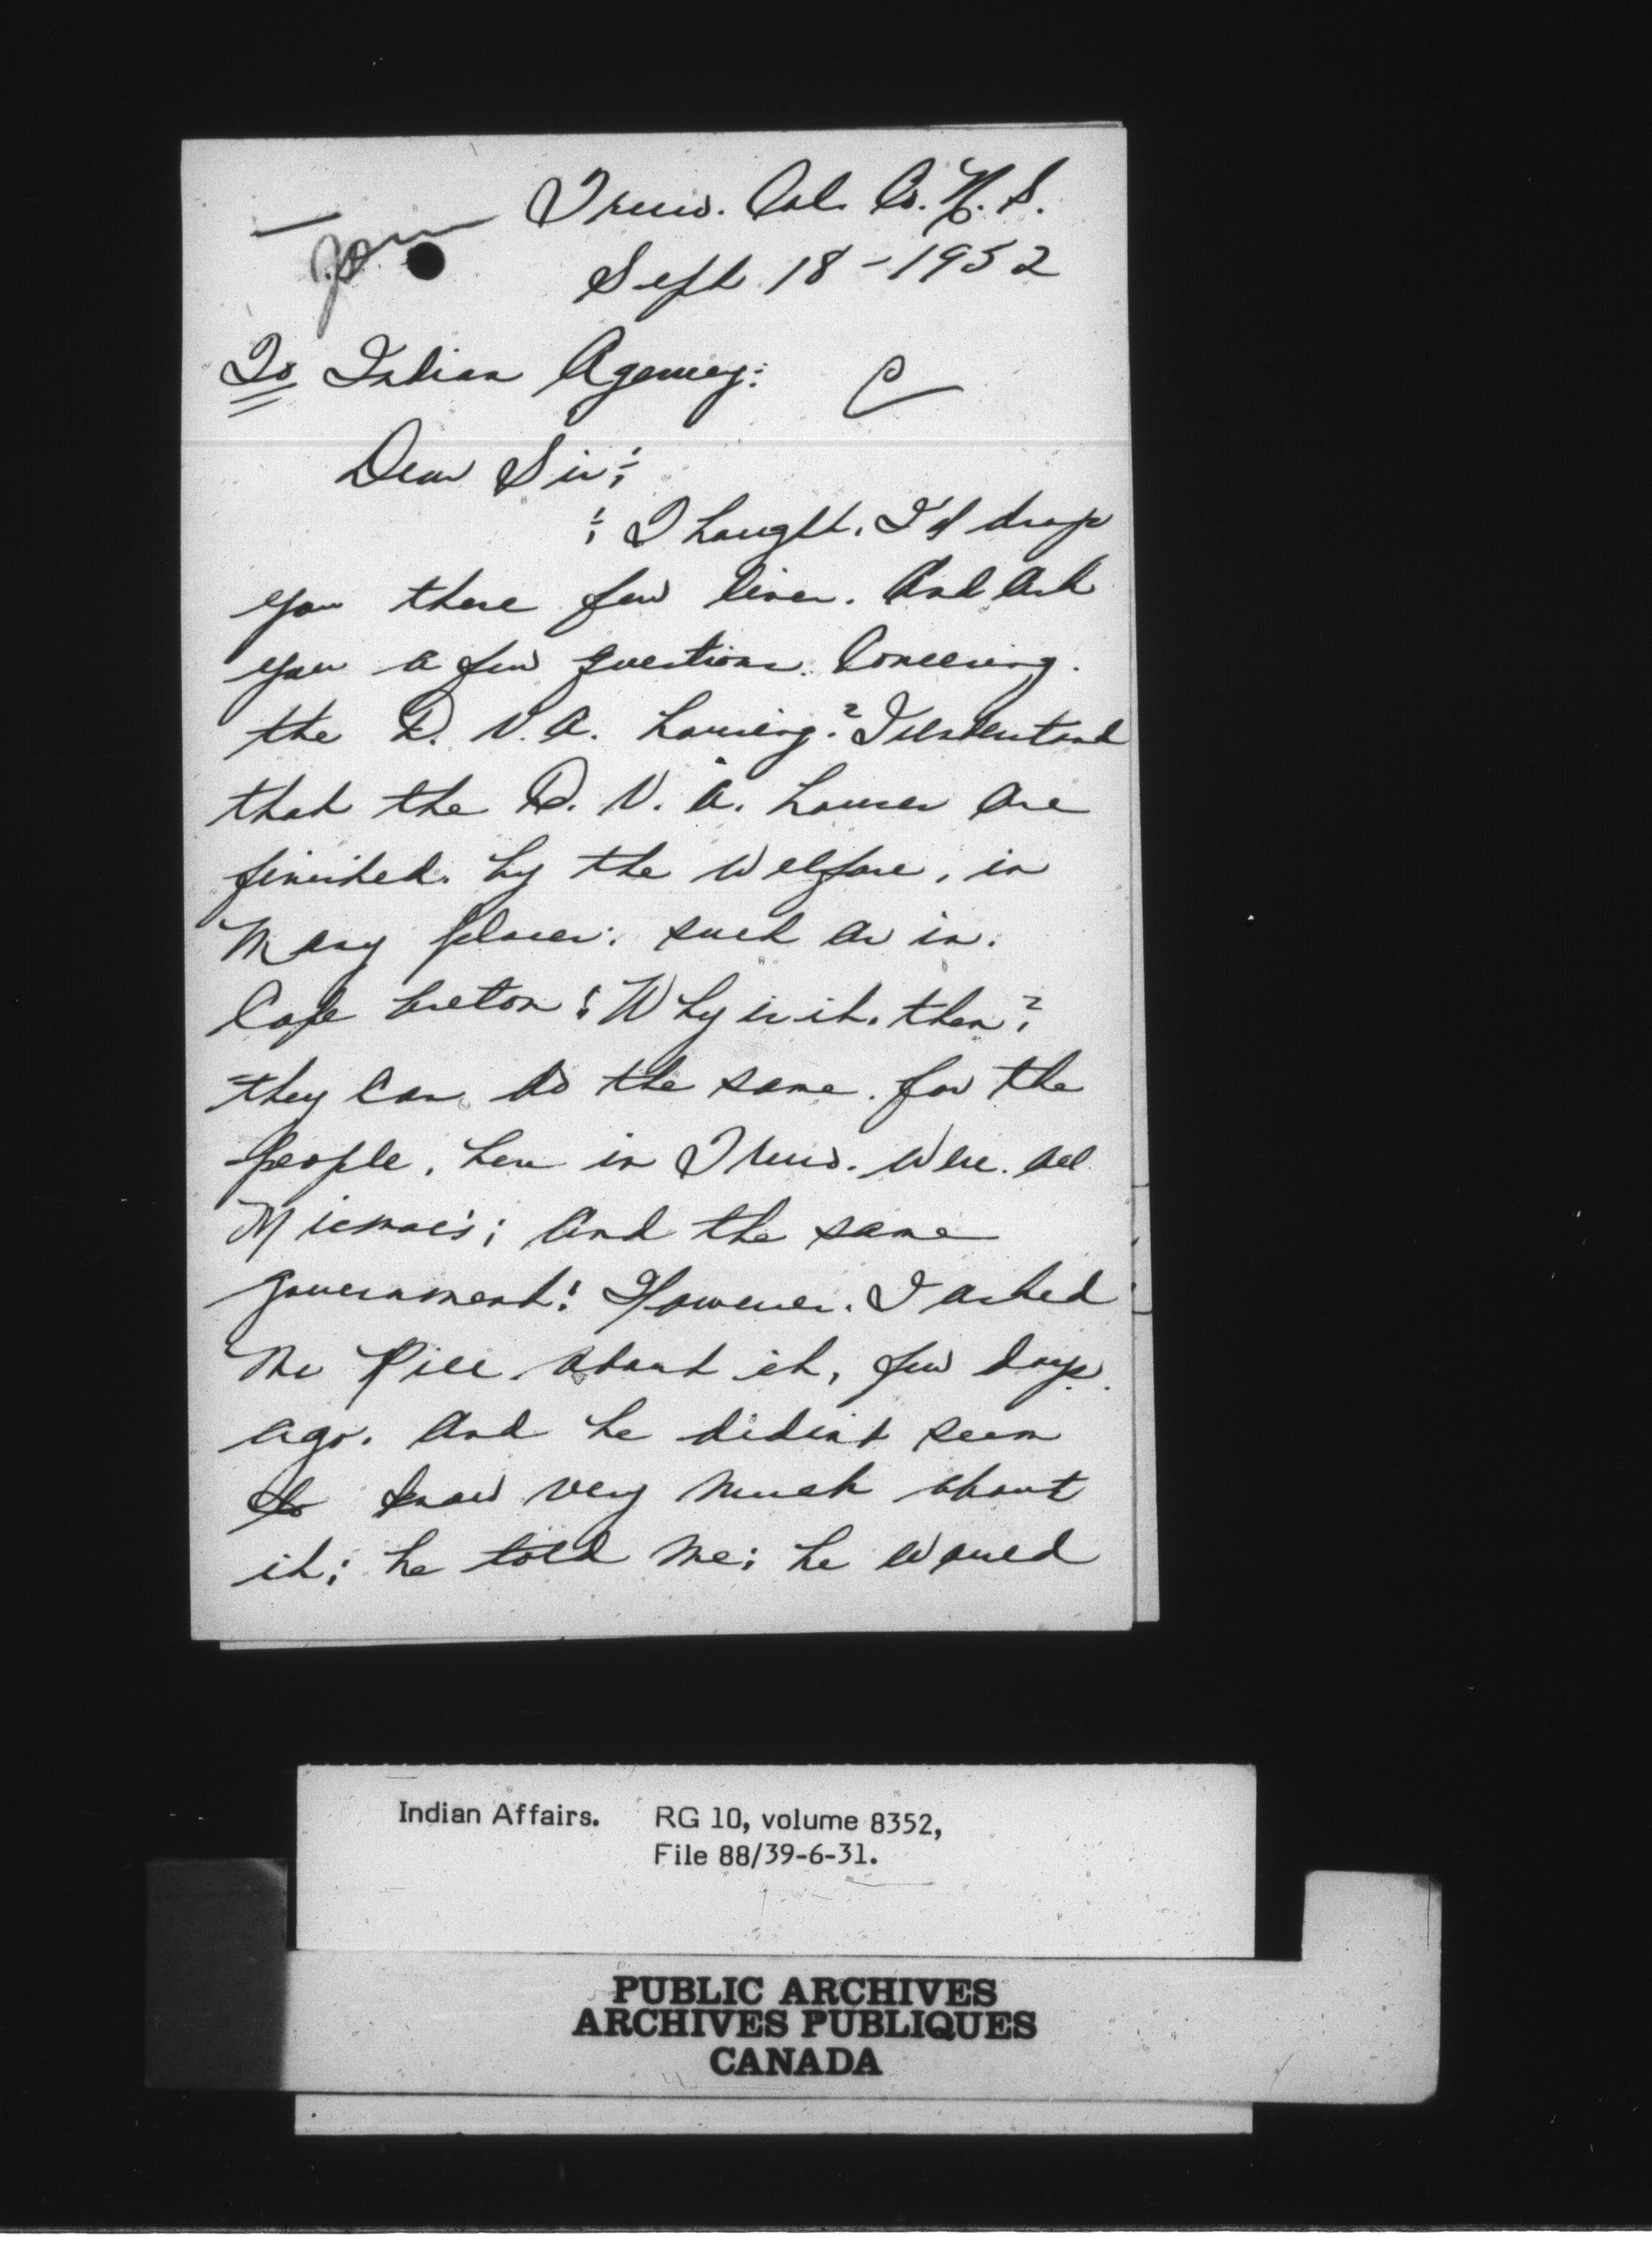 Truro. Col. Co. N. S.
Sept. 18 - 1952
To Indian Agency:
Dear Sir:
: Thought. I'd drop
you these few lines. And ask
you a few questions. Concering.
the D. V. A. housing? I understand
that the D. V. A. houses are
finished. by the Welfare, in
Many places. such as in.
Cape breton: Why is it. then?
they can do the same. for the
people, here in Truro. Were. all
Micmac's; And the same
government! However. I asked
Mr Rice. about it, few days.
ago. And he didint seem
to know very much about
it; he told me; he would
Indian Affairs. RG 10, volume 8352,
File 88/39-6-31.
PUBLIC ARCHIVES
ARCHIVES PUBLIQUES
CANADA